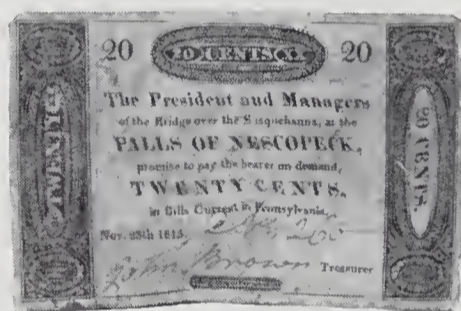 20 20 CENTS. 20
The President and Managers
of the Bridge over the Susquehanna, at the
FALLS OF NESCOPECK,
promise to pay the bearer on demand,
TWENTY CENTS,
in Bills Current in Pennsylvania.
Nov. 25th 1815.
John Brown Treasurer
20 CENTS.